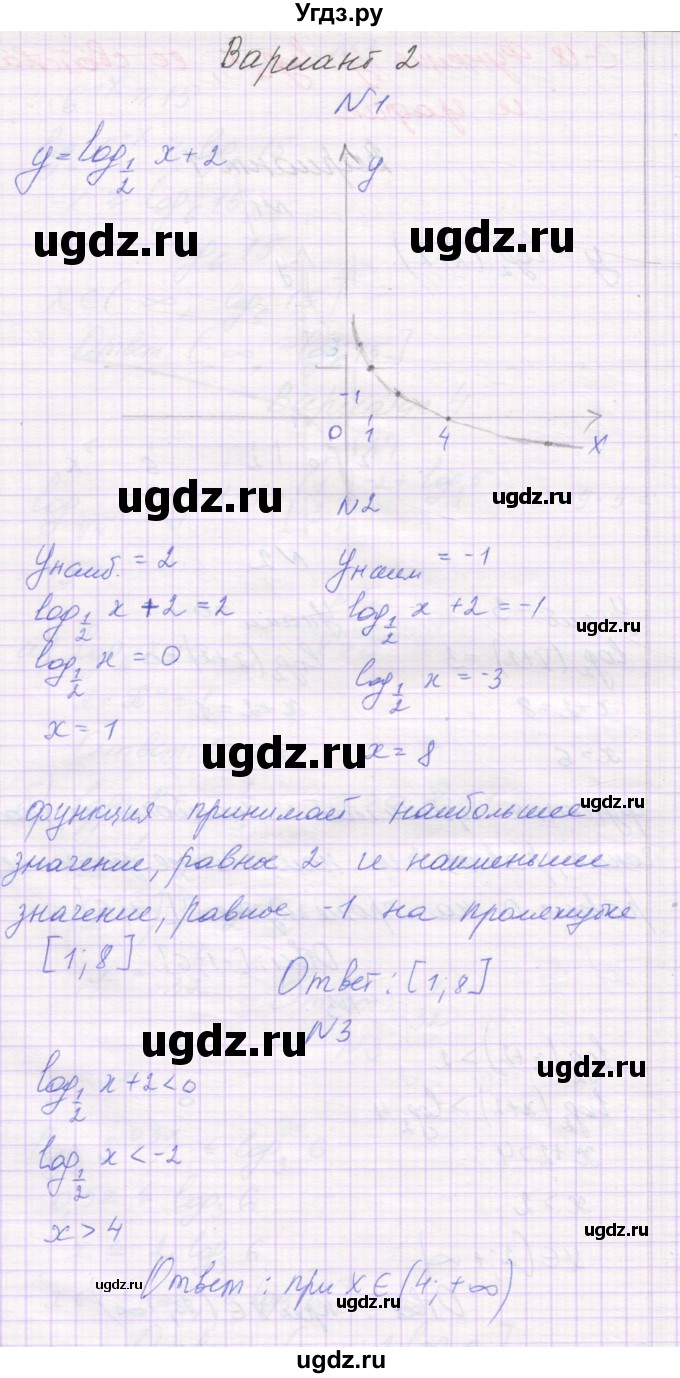 Угдз.ру
Вариант 2
N1
y = log_{1/2} x + 2
y
ugdz.ru
ugdz.ru
3
1
0 1 4 x
ugdz.ru
ugdz.ru
N2
yнаиб. = 2
yнаим = -1
log_{1/2} x + 2 = 2
log_{1/2} x + 2 = -1
ugdz.ru
log_{1/2} x = 0
log_{1/2} x = -3
x = 1
x = 8
ugdz.ru
функция принимает наибольшее
ugdz.ru
значение, равное 2 и наименьшее
значение, равное -1 на промежутке
[1; 8]
Ответ: [1; 8]
N3
ugdz.ru
ugdz.ru
log_{1/2} x + 2 < 0
log_{1/2} x < -2
x > 4
ugdz.ru
ugdz.ru
Ответ: при x ∈ (4; +∞)
ugdz.ru
ugdz.ru